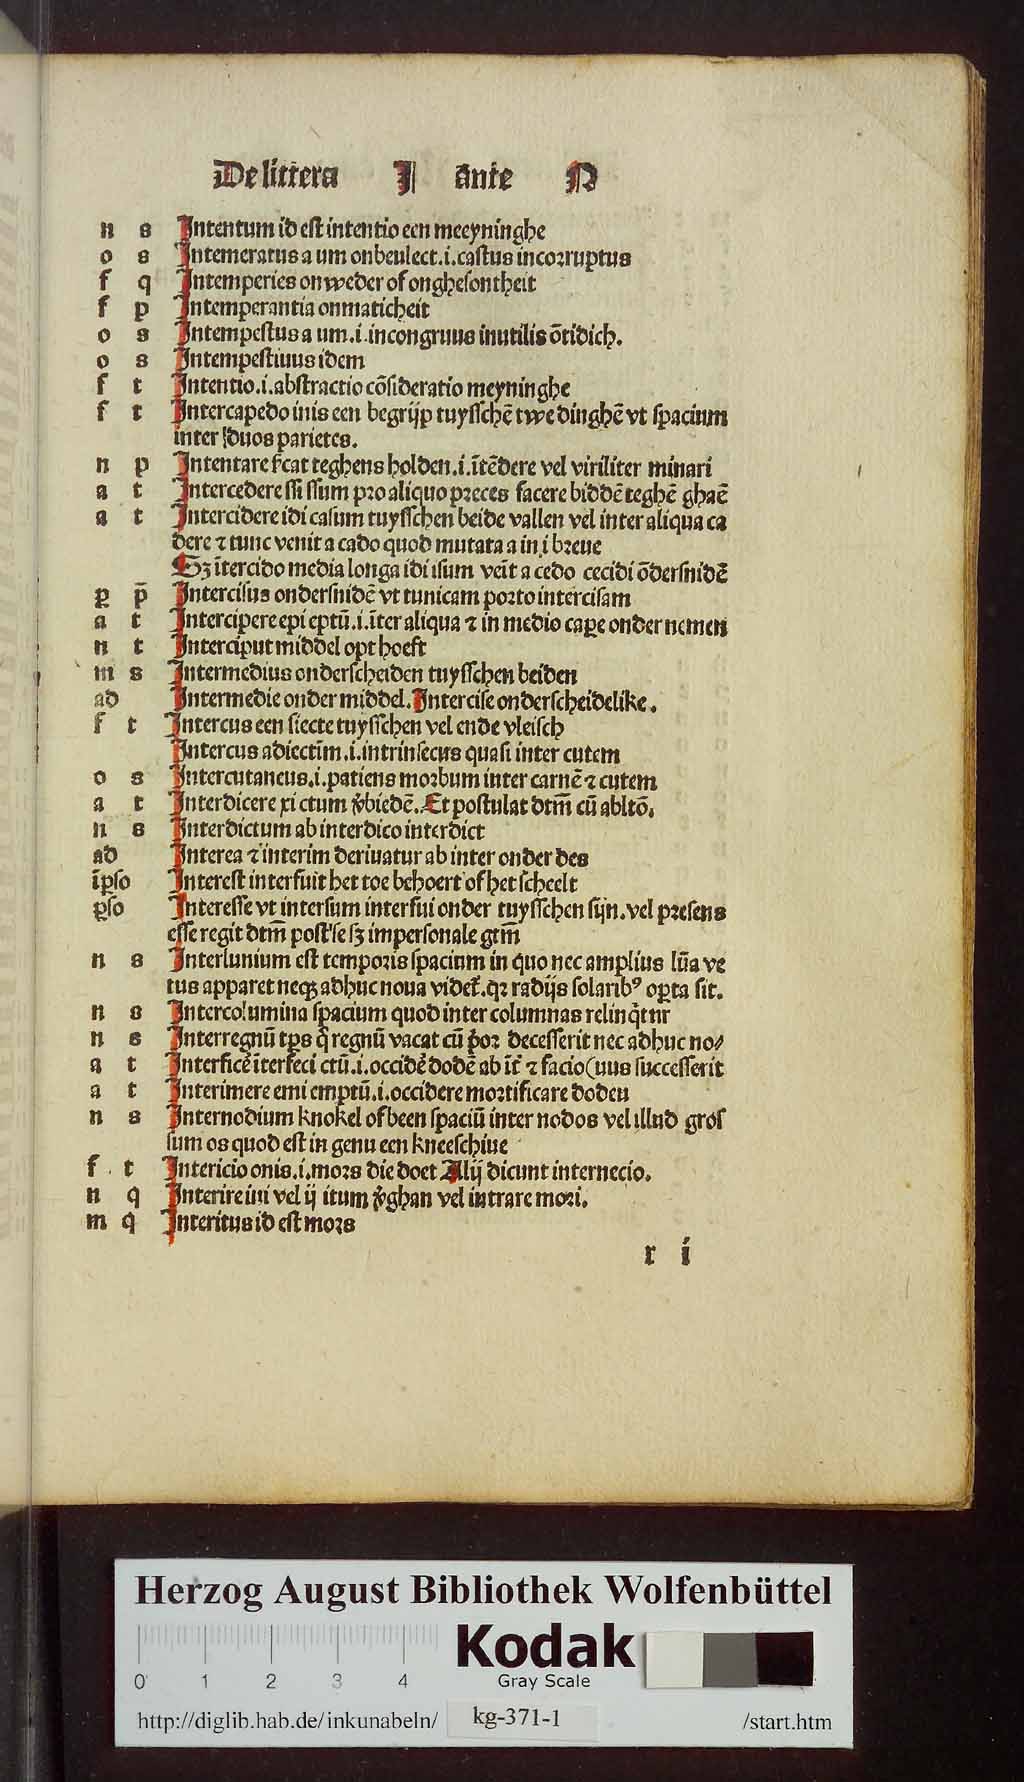 De littera I ante N
n s Intentum id est intentio een meeyninghe
o s Intemeratus a um onbeulect .i. castus incorruptus
f q Intemperies onweder of onghesontheit
f p Intemperantia onmaticheit
o s Intempestus a um .i. incongruus inutilis ōtidich.
o s Intempestiuus idem
f t Intentio .i. abstractio cōsideratio meyninghe
f t Intercapedo inis een begrijp tuysschē twe dinghē vt spacium
inter duos parietes.
n p Intentare fcat teghens holden .i. ītēdere vel viriliter minari
a t Intercedere ssi ssum pro aliquo preces facere biddē teghē ghaē
a t Intercidere idi casum tuysschen beide vallen vel inter aliqua ca
dere ⁊ tunc venit a cado quod mutata a in i breue
Sꝫ ītercido media longa idi isum veīt a cedo cecidi ōdersnidē
ꝑ p̄ Intercisus ondersnidē vt tunicam porto intercisam
a t Intercipere epi eptū .i. īter aliqua ⁊ in medio caꝑe onder nemen
n t Interciput middel opt hoeft
m s Intermedius onderscheiden tuysschen beiden
ad Intermedie onder middel. Intercise onderscheidelike.
f t Intercus een siecte tuysschen vel ende vleisch
Intercus adiectīm .i. intrinsecus quasi inter cutem
o s Intercutaneus .i. patiens morbum inter carnē ⁊ cutem
a t Interdicere xi ctum v̓biedē. Et postulat dtm̄ cū abltō.
n s Interdictum ab interdico interdict
ad Interea ⁊ interim deriuatur ab inter onder des
īꝑso Interest interfuit het toe behoert of het scheelt
ꝑso Interesse vt intersum interfui onder tuysschen sijn. vel presens
esse regit dtm̄ post se sꝫ impersonale gtm̄
n s Interlunium est temporis spacium in quo nec amplius lūa ve
tus apparet neqꝫ adhuc noua videt᷑. qꝛ radijs solaribꝰ oꝑta sit.
n s Intercolumina spacium quod inter columnas relinq̇tur
n s Interregnū tp̄s q̄ regnū vacat cū p̓or decesserit nec adhuc no⸗
a t Interficē īterfeci ctū .i. occidē dodē ab īt̓ ⁊ facio (uus successerit
a t Interimere emi emptū .i. occidere mortificare doden
n s Internodium knokel of been spaciū inter nodos vel illud gros
sum os quod est in genu een kneeschiue
f t Intericio onis .i. mors die doet Alij dicunt internecio.
n q Interire iui vel ij itum v̓ghan vel intrare mori.
m q̇ Interitus id est mors
r i
Herzog August Bibliothek Wolfenbüttel
Kodak
0 1 2 3 4
Gray Scale
http://diglib.hab.de/inkunabeln/ kg-371-1 /start.htm